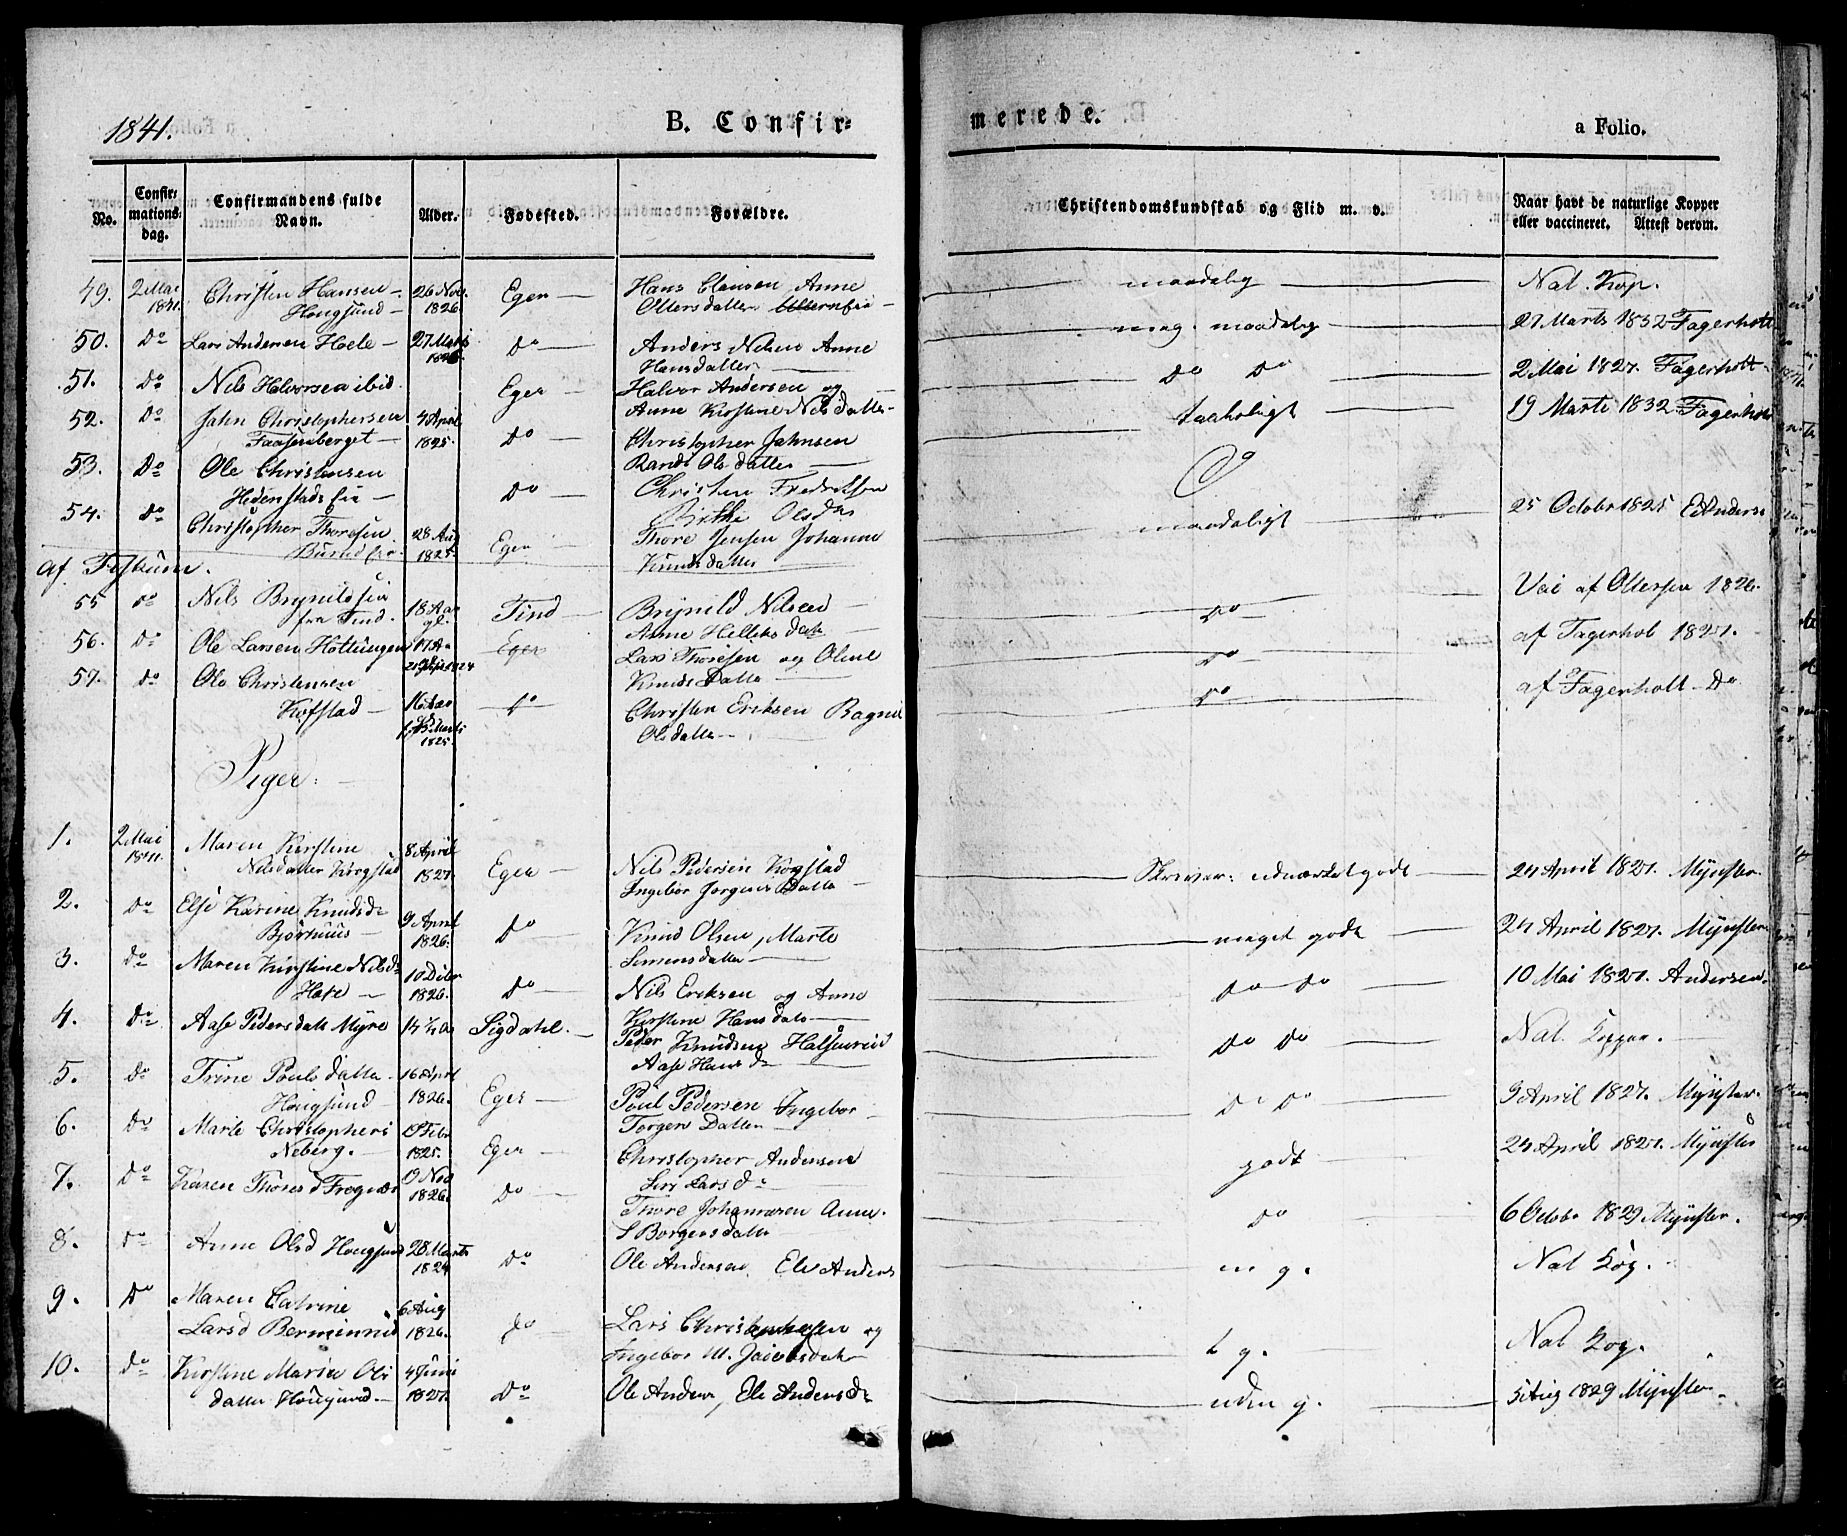 1841.
B. Confir=
merede.
a Folio.
No.
Confir=
mations=
dag.
Confirmandens fulde
Navn.
Alder.
Fødested.
Forældre.
Christendomskundskab og Flid m. v.
Naar havt de naturlige Kopper
eller vaccineret. Attest derom.
49. 2 Mai 1841. Christen Hansen Hougsund 26 Nov. 1826. Eger Hans Clausen Anne Ollersdatter maadelig Nat. Kop.
50. Do Lars Andersen Hoele 27 Do Anders Nilsen Anne Hansdatter meg. maadelig 27 Marts 1832 Fagerholt
51. Do Nils Halvorsen ibid. Eger Halvor Andersen og Anne Kirstine Nilsdatter Do Do 2 Mai 1827. Fagerholt
52. Do Jahn Christophersen 4 April 1825. Do Christopher Jahnsen Randi Olsdatter taaleligt 19 Marts 1832 Fagerholt
53. Do Ole Christensen Hedenstads Do Christen Fredriksen Birthe Olsdr
54. Do Christopher Thoresen 28 Aug 1825. Eger Thore Jensen Johanne Knudsdatter maadeligt 25 Octobr 1825 Anders
af
55 do Nils Brynildsen fra Tind. 18 Aar gl. Tind Brynild Nilsen Anne Helliksdatr Do af Ollersen 1826.
56. do Ole Larsen Eger Lars Thoresen og Oline Knudsdatter Do af Fagerhol 1827.
57. do Ole Christensen Kofstad 16 Aar 1825. do Christen Eriksen Ragnil Olsdatter Do af Fagerholt Do
Piger.
1. 2 Mai 1841. Maren Kirstine Nilsdatter Korgstad 8 April 1827. Eger Nils Pedersen Kogstad Ingebor Jorgensdatter Skriver: udmærket godt 24 April 1827. Mynster.
2. Do Else Karine Knudsdr Bjørhuus 9 April 1826. Do Knud Olsen, Marte Simensdatter meget godt 24 April 1827. Mynster.
3. do Maren Kirstine Nilsdr Hære 10 Dcbr 1826. Do Nils Eriksen og Anne Kirstine Hansdatr Do Do 10 Mai 1827. Andersen.
4. Do Aase Pedersdatr Myre Sigdahl. Peder Knudsen Aase Hansdr Do Do Nat. Kopper.
5. do Trine Poulsdatter Hougsund 16 April 1826. Eger Poul Pedersen Ingebor Torgersdatter Do Do 9 April 1827. Mynster.
6. Do Marte Christophers Neberg. Febr 1825. Eger Christopher Andersen Siri Larsdr godt 24 April 1827. Mynster
7. Do Karen Thoresd Fregner 9 Nov 1826. Do Thore Johannesen Anne Borgersdatter Do 6 Octobr 1829 Mynster.
8. Do Anne Olsd Hougsund 28 Marts 1824 Do Ole Andersen, Ele Anders m g. Nat Kop.
9. Do Maren Catrine Larsd 6 Aug 1826. do Lars Christophersen og Ingebor M. Jacobsdatr t g. Nat Kop.
10. Do Kirstine Maria Olsdatter Hougsund 4 Juni 1827. Do Ole Anders, Ele Andersdr uden g. 5 Aug 1829 Mynster